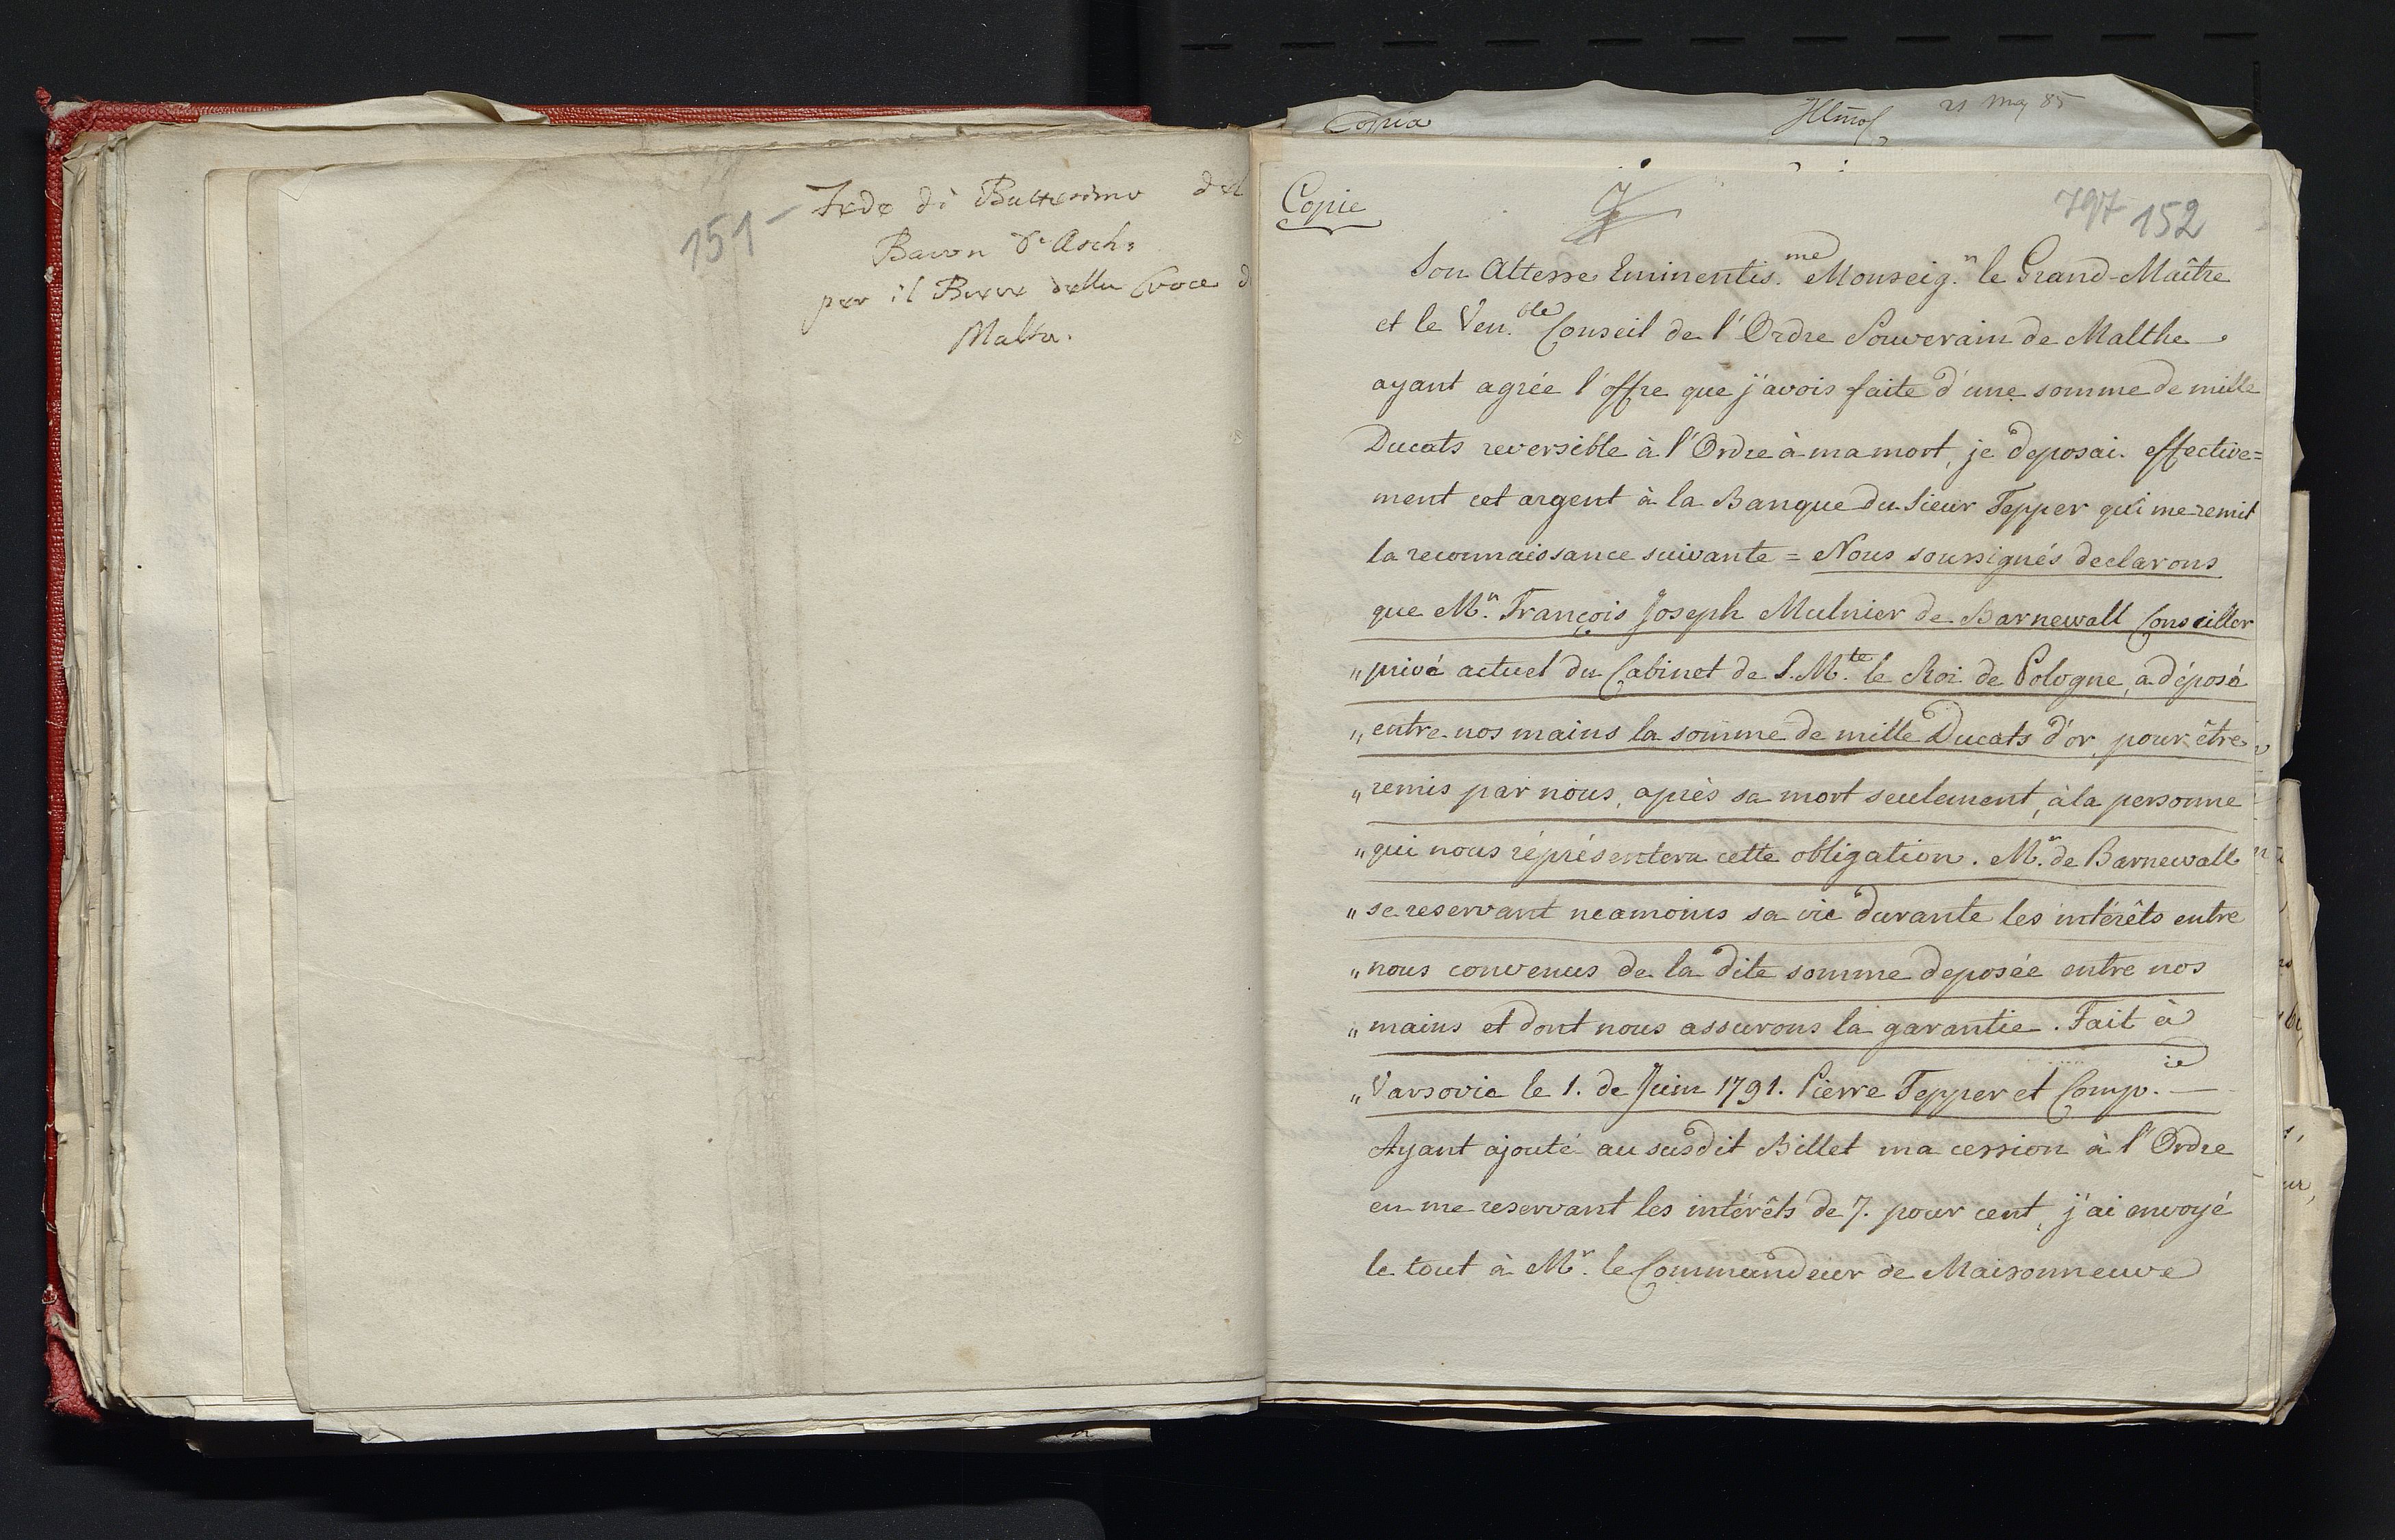 151-
Fede di Battesimo del
Baron d'Asch:
per il Breve della Croce d
Malta.
Copia
21 Mag 85
Copie
797 152
Son Altesse Eminentis.me Monseig.r le Grand-Maître
et le Ven.ble Conseil de l'Ordre Souverain de Malthe
ayant agrée l'offre que j'avois faite d'une somme de mille
Ducats reversible à l'Ordre à ma mort, je deposai effective=
ment cet argent à la Banque du Sieur Tepper qui me remit
la reconnaissance suivante = Nous soussignés declarons
que M.r François Joseph Mulnier de Barnewall Conseiller
„ privé actuel du Cabinet de S. M.te le Roi de Pologne, a déposé
„ entre nos mains la somme de mille Ducats d'or, pour être
„ remis par nous, après sa mort seulement, à la personne
„ qui nous réprésentera cette obligation. M.r de Barnewall
„ se reservant neamoins sa vie durante les intérêts entre
„ nous convenus de la dite somme deposée entre nos
„ mains et dont nous assurons la garantie. Fait à
„ Varsovie le 1. de Juin 1791. Pierre Tepper et Comp.ie —
Ayant ajouté au susdit Billet ma cession à l'Ordre
en me reservant les intérêts de 7. pour cent, j'ai envoyé
le tout à M.r le Commandeur de Maisonneuve